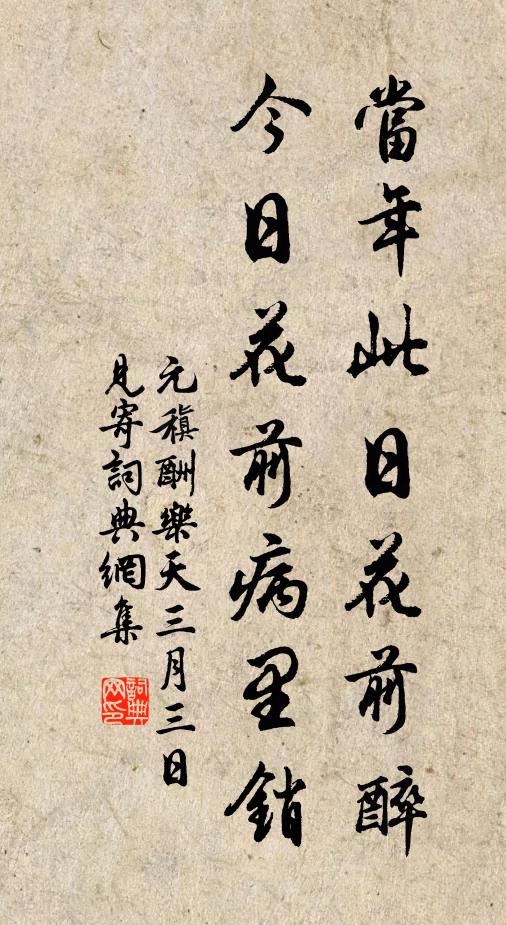 當年此日花前醉
今日花前病里銷
元稹酬樂天三月三日
見寄詞典網集
詞典
网印